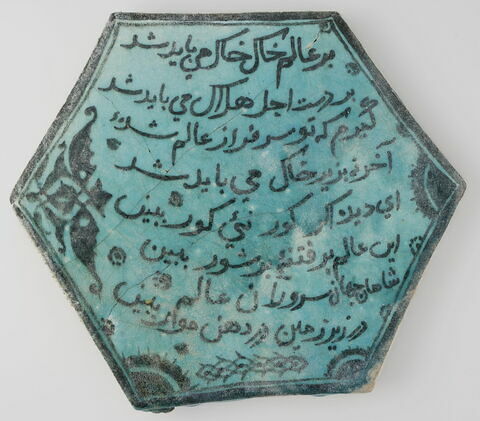 بر عالم خاک خاک می باید شد
بر دست اجل هلاک می باید شد
گیرم که تو سر فراز عالم شدهٔ
آخر نه بزیر خاک می باید شد
ای دیده اگر کور نئی کور ببین
این عالم پر فتنه پر شور ببین
شاهان جهان سروران عالم ببین
در زیر زمین در دهن مور ببین